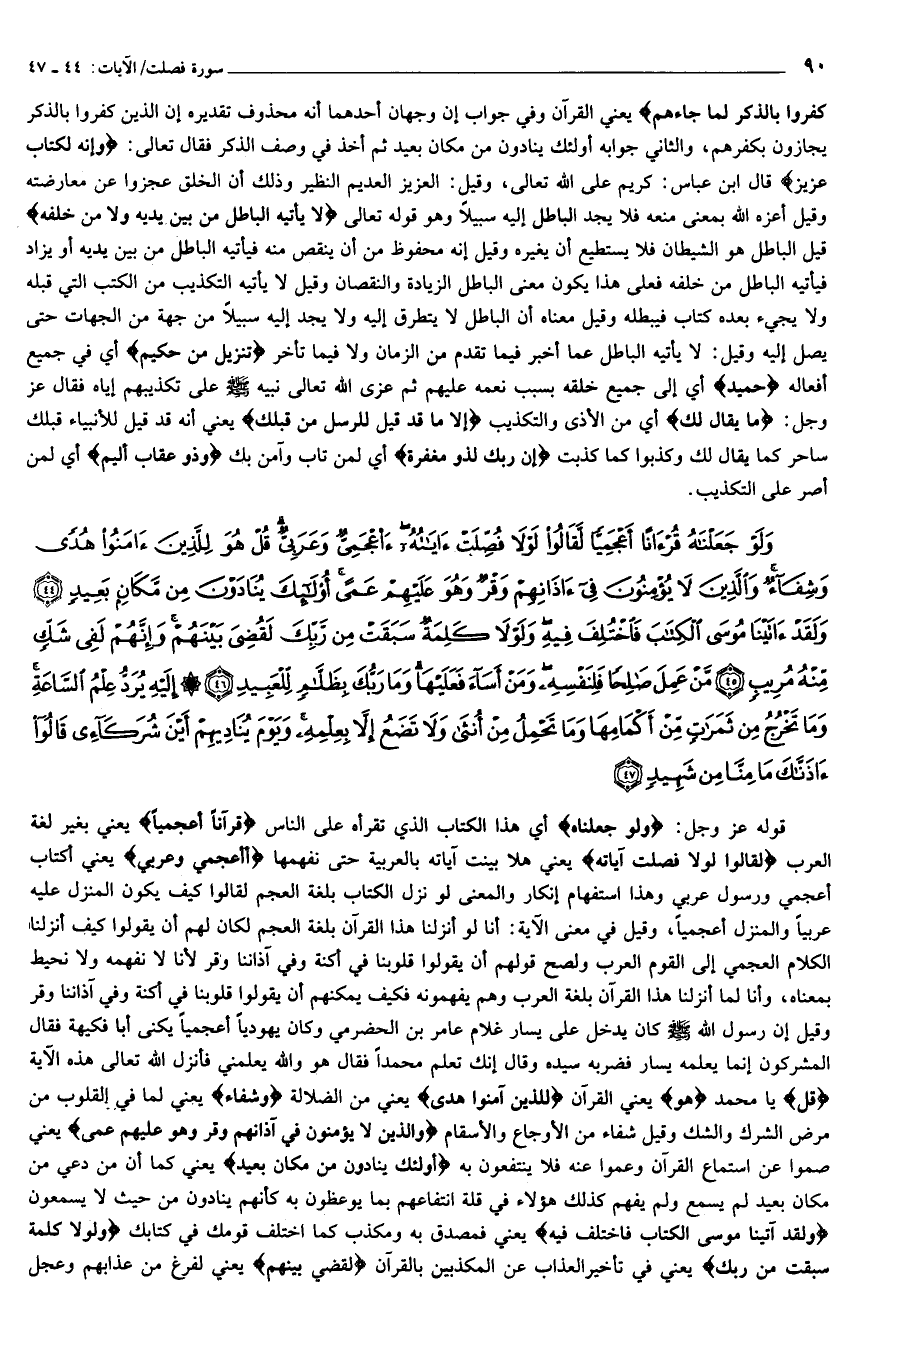 ٩٠ سورة فصلت/ الآيات: ٤٤ ـ ٤٧
كفروا بالذكر لما جاءهم﴾ يعني القرآن وفي جواب إن وجهان أحدهما أنه محذوف تقديره إن الذين كفروا بالذكر
يجازون بكفرهم، والثاني جوابه أولئك ينادون من مكان بعيد ثم أخذ في وصف الذكر فقال تعالى: ﴿وإنه لكتاب
عزيز﴾ قال ابن عباس: كريم على الله تعالى، وقيل: العزيز العديم النظير وذلك أن الخلق عجزوا عن معارضته
وقيل أعزه الله بمعنى منعه فلا يجد الباطل إليه سبيلاً وهو قوله تعالى ﴿لا يأتيه الباطل من بين يديه ولا من خلفه﴾
قيل الباطل هو الشيطان فلا يستطيع أن يغيره وقيل إنه محفوظ من أن ينقص منه فيأتيه الباطل من بين يديه أو يزاد
فيأتيه الباطل من خلفه فعلى هذا يكون معنى الباطل الزيادة والنقصان وقيل لا يأتيه التكذيب من الكتب التي قبله
ولا يجيء بعده كتاب فيبطله وقيل معناه أن الباطل لا يتطرق إليه ولا يجد إليه سبيلاً من جهة من الجهات حتى
يصل إليه وقيل: لا يأتيه الباطل عما أخبر فيما تقدم من الزمان ولا فيما تأخر ﴿تنزيل من حكيم﴾ أي في جميع
أفعاله ﴿حميد﴾ أي إلى جميع خلقه بسبب نعمه عليهم ثم عزى الله تعالى نبيه ﷺ على تكذيبهم إياه فقال عز
وجل: ﴿ما يقال لك﴾ أي من الأذى والتكذيب ﴿إلا ما قد قيل للرسل من قبلك﴾ يعني أنه قد قيل للأنبياء قبلك
ساحر كما يقال لك وكذبوا كما كذبت ﴿إن ربك لذو مغفرة﴾ أي لمن تاب وآمن بك ﴿وذو عقاب أليم﴾ أي لمن
أصر على التكذيب.
وَلَوْ جَعَلْنَٰهُ قُرْءَانًا أَعْجَمِيًّا لَّقَالُوا۟ لَوْلَا فُصِّلَتْ ءَايَٰتُهُۥٓ ءَا۬عْجَمِىٌّ وَعَرَبِىٌّ قُلْ هُوَ لِلَّذِينَ ءَامَنُوا۟ هُدًى
وَشِفَآءٌ وَٱلَّذِينَ لَا يُؤْمِنُونَ فِىٓ ءَاذَانِهِمْ وَقْرٌ وَهُوَ عَلَيْهِمْ عَمًى أُو۟لَٰٓئِكَ يُنَادَوْنَ مِن مَّكَانٍۭ بَعِيدٍ ﴿٤٤﴾
وَلَقَدْ ءَاتَيْنَا مُوسَى ٱلْكِتَٰبَ فَٱخْتُلِفَ فِيهِ وَلَوْلَا كَلِمَةٌ سَبَقَتْ مِن رَّبِّكَ لَقُضِىَ بَيْنَهُمْ وَإِنَّهُمْ لَفِى شَكٍّ
مِّنْهُ مُرِيبٍ ﴿٤٥﴾ مَّنْ عَمِلَ صَٰلِحًا فَلِنَفْسِهِۦ وَمَنْ أَسَآءَ فَعَلَيْهَا وَمَا رَبُّكَ بِظَلَّٰمٍ لِّلْعَبِيدِ ﴿٤٦﴾ ۞ إِلَيْهِ يُرَدُّ عِلْمُ ٱلسَّاعَةِ
وَمَا تَخْرُجُ مِن ثَمَرَٰتٍ مِّنْ أَكْمَامِهَا وَمَا تَحْمِلُ مِنْ أُنثَىٰ وَلَا تَضَعُ إِلَّا بِعِلْمِهِۦ وَيَوْمَ يُنَادِيهِمْ أَيْنَ شُرَكَآءِى قَالُوٓا۟
ءَاذَنَّٰكَ مَا مِنَّا مِن شَهِيدٍ ﴿٤٧﴾
قوله عز وجل: ﴿ولو جعلناه﴾ أي هذا الكتاب الذي تقرأه على الناس ﴿قرآناً أعجمياً﴾ يعني بغير لغة
العرب ﴿لقالوا لولا فصلت آياته﴾ يعني هلا بينت آياته بالعربية حتى نفهمها ﴿أأعجمي وعربي﴾ يعني أكتاب
أعجمي ورسول عربي وهذا استفهام إنكار والمعنى لو نزل الكتاب بلغة العجم لقالوا كيف يكون المنزل عليه
عربياً والمنزل أعجمياً، وقيل في معنى الآية: أنا لو أنزلنا هذا القرآن بلغة العجم لكان لهم أن يقولوا كيف أنزلنا
الكلام العجمي إلى القوم العرب ولصح قولهم أن يقولوا قلوبنا في أكنة وفي آذاننا وقر لأنا لا نفهمه ولا نحيط
بمعناه، وأنا لما أنزلنا هذا القرآن بلغة العرب وهم يفهمونه فكيف يمكنهم أن يقولوا قلوبنا في أكنة وفي آذاننا وقر
وقيل إن رسول الله ﷺ كان يدخل على يسار غلام عامر بن الحضرمي وكان يهودياً أعجمياً يكنى أبا فكيهة فقال
المشركون إنما يعلمه يسار فضربه سيده وقال إنك تعلم محمداً فقال هو والله يعلمني فأنزل الله تعالى هذه الآية
﴿قل﴾ يا محمد ﴿هو﴾ يعني القرآن ﴿للذين آمنوا هدى﴾ يعني من الضلالة ﴿وشفاء﴾ يعني لما في القلوب من
مرض الشرك والشك وقيل شفاء من الأوجاع والأسقام ﴿والذين لا يؤمنون في آذانهم وقر وهو عليهم عمى﴾ يعني
صموا عن استماع القرآن وعموا عنه فلا ينتفعون به ﴿أولئك ينادون من مكان بعيد﴾ يعني كما أن من دعي من
مكان بعيد لم يسمع ولم يفهم كذلك هؤلاء في قلة انتفاعهم بما يوعظون به كأنهم ينادون من حيث لا يسمعون
﴿ولقد آتينا موسى الكتاب فاختلف فيه﴾ يعني فمصدق به ومكذب كما اختلف قومك في كتابك ﴿ولولا كلمة
سبقت من ربك﴾ يعني في تأخيرالعذاب عن المكذبين بالقرآن ﴿لقضي بينهم﴾ يعني لفرغ من عذابهم وعجل